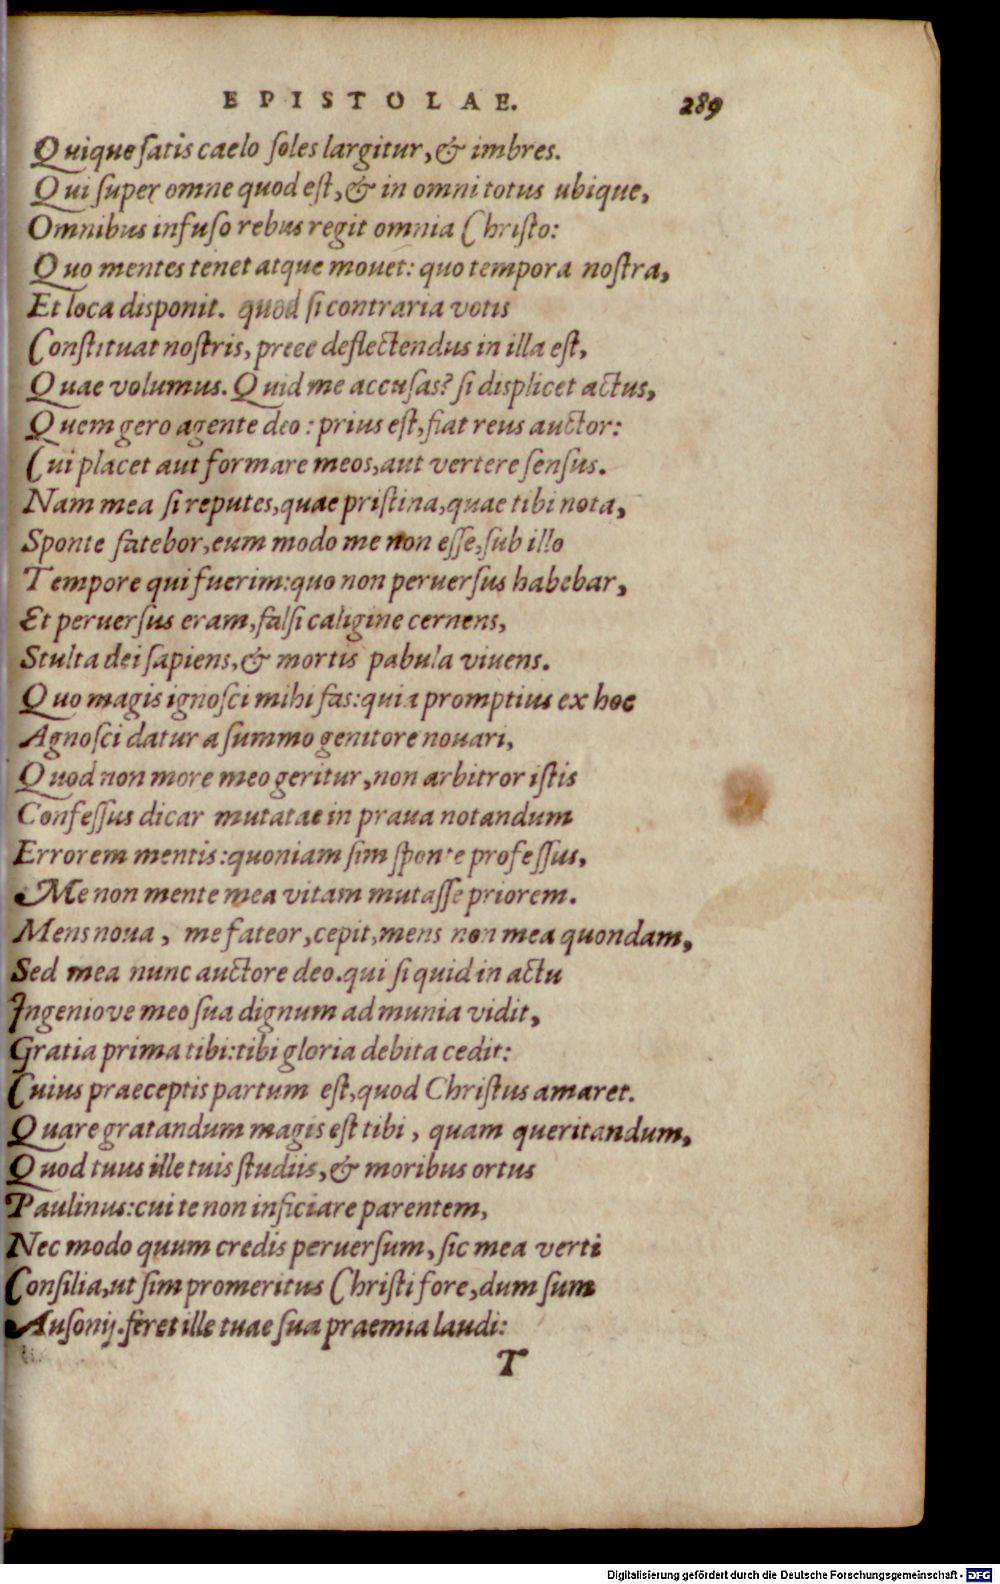 EPISTOLAE. 289
Quique satis caelo soles largitur, & imbres.
Qui super omne quod est, & in omni totus ubique,
Omnibus infuso rebus regit omnia Christo:
Quo mentes tenet atque mouet: quo tempora nostra,
Et loca disponit. quod si contraria votis
Constituat nostris, prece deflectendus in illa est,
Quae volumus. Quid me accusas? si displicet actus,
Quem gero agente deo: prius est, fiat reus auctor:
Cui placet aut formare meos, aut vertere sensus.
Nam mea si reputes, quae pristina, quae tibi nota,
Sponte fatebor, eum modo me non esse, sub illo
Tempore qui fuerim: quo non peruersus habebar,
Et peruersus eram, falsi caligine cernens,
Stulta dei sapiens, & mortis pabula viuens.
Quo magis ignosci mihi fas: quia promptius ex hoc
Agnosci datur a summo genitore nouari,
Quod non more meo geritur, non arbitror istis
Confessus dicar mutatae in praua notandum
Errorem mentis: quoniam sim sponte professus,
Me non mente mea vitam mutasse priorem.
Mens noua, me fateor, cepit, mens non mea quondam,
Sed mea nunc auctore deo. qui si quid in actu
Ingeniove meo sua dignum ad munia vidit,
Gratia prima tibi: tibi gloria debita cedit:
Cuius praeceptis partum est, quod Christus amaret.
Quare gratandum magis est tibi, quam queritandum,
Quod tuus ille tuis studiis, & moribus ortus
Paulinus: cui te non inficiare parentem,
Nec modo quum credis peruersum, sic mea verti
Consilia, ut sim promeritus Christi fore, dum sum
Ausonij. feret ille tuae sua praemia laudi:
T
Digitalisierung gefördert durch die Deutsche Forschungsgemeinschaft - DFG